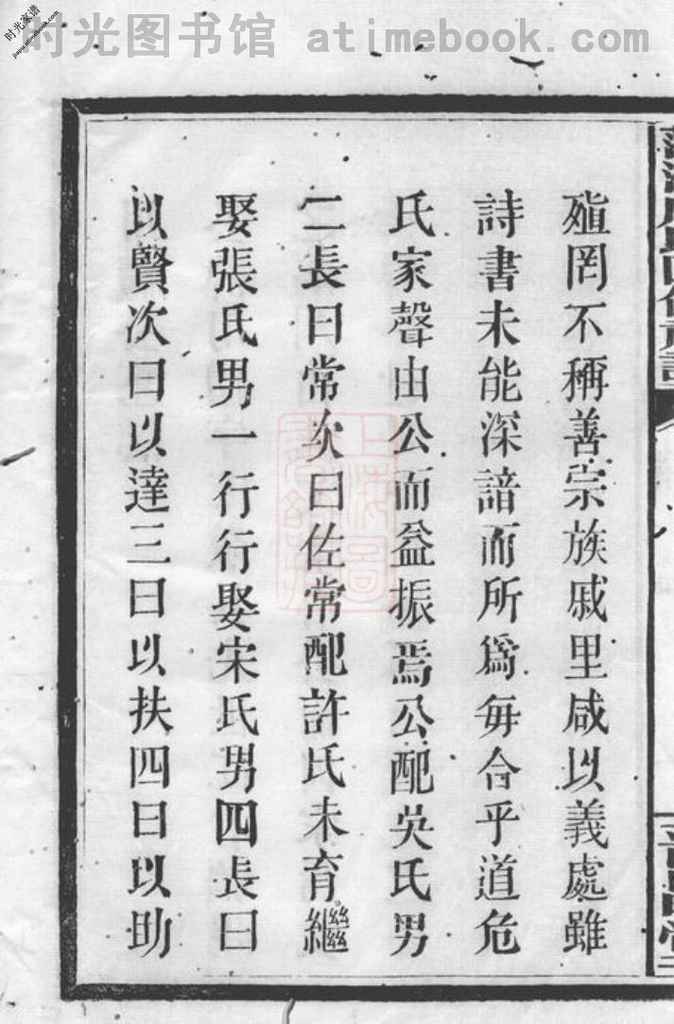 时光图书馆 atimebook.com
时光家谱
殖罔不稱善宗族戚里咸以義處雖
詩書未能深諳而所爲每合乎道危
氏家聲由公而益振焉公配吳氏男
二長曰常次曰佐常配許氏未育繼
娶張氏男一行行娶宋氏男四長曰
以賢次曰以達三曰以扶四曰以助